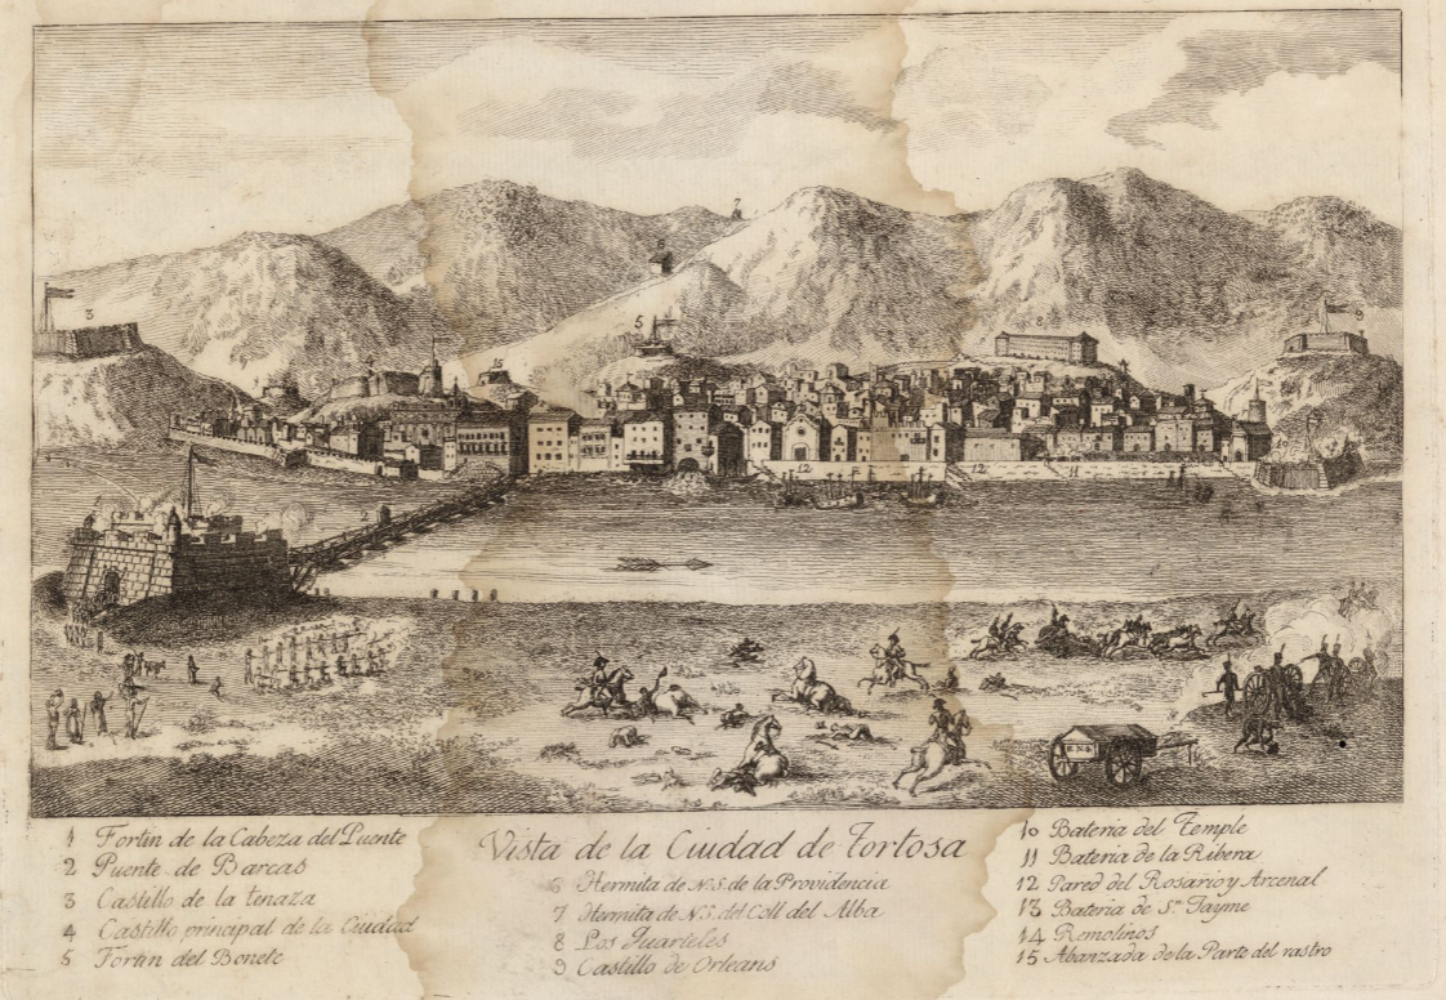 7
6
3
5
8
9
4
15
10
12
12
11
2
1 Fortin de la Cabeza del Puente
2 Puente de Barcas
3 Castillo de la tenaza
4 Castillo principal de la Ciudad
5 Fortin del Bonete
Vista de la Ciudad de Tortosa
6 Hermita de N.S. de la Providencia
7 Hermita de N.S. del Coll del Alba
8 Los Quarteles
9 Castillo de Orleans
10 Bateria del Temple
11 Bateria de la Ribera
12 Pared del Rosario y Arcenal
13 Bateria de Sn. Jayme
14 Remolinos
15 Abanzada de la Parte del rastro